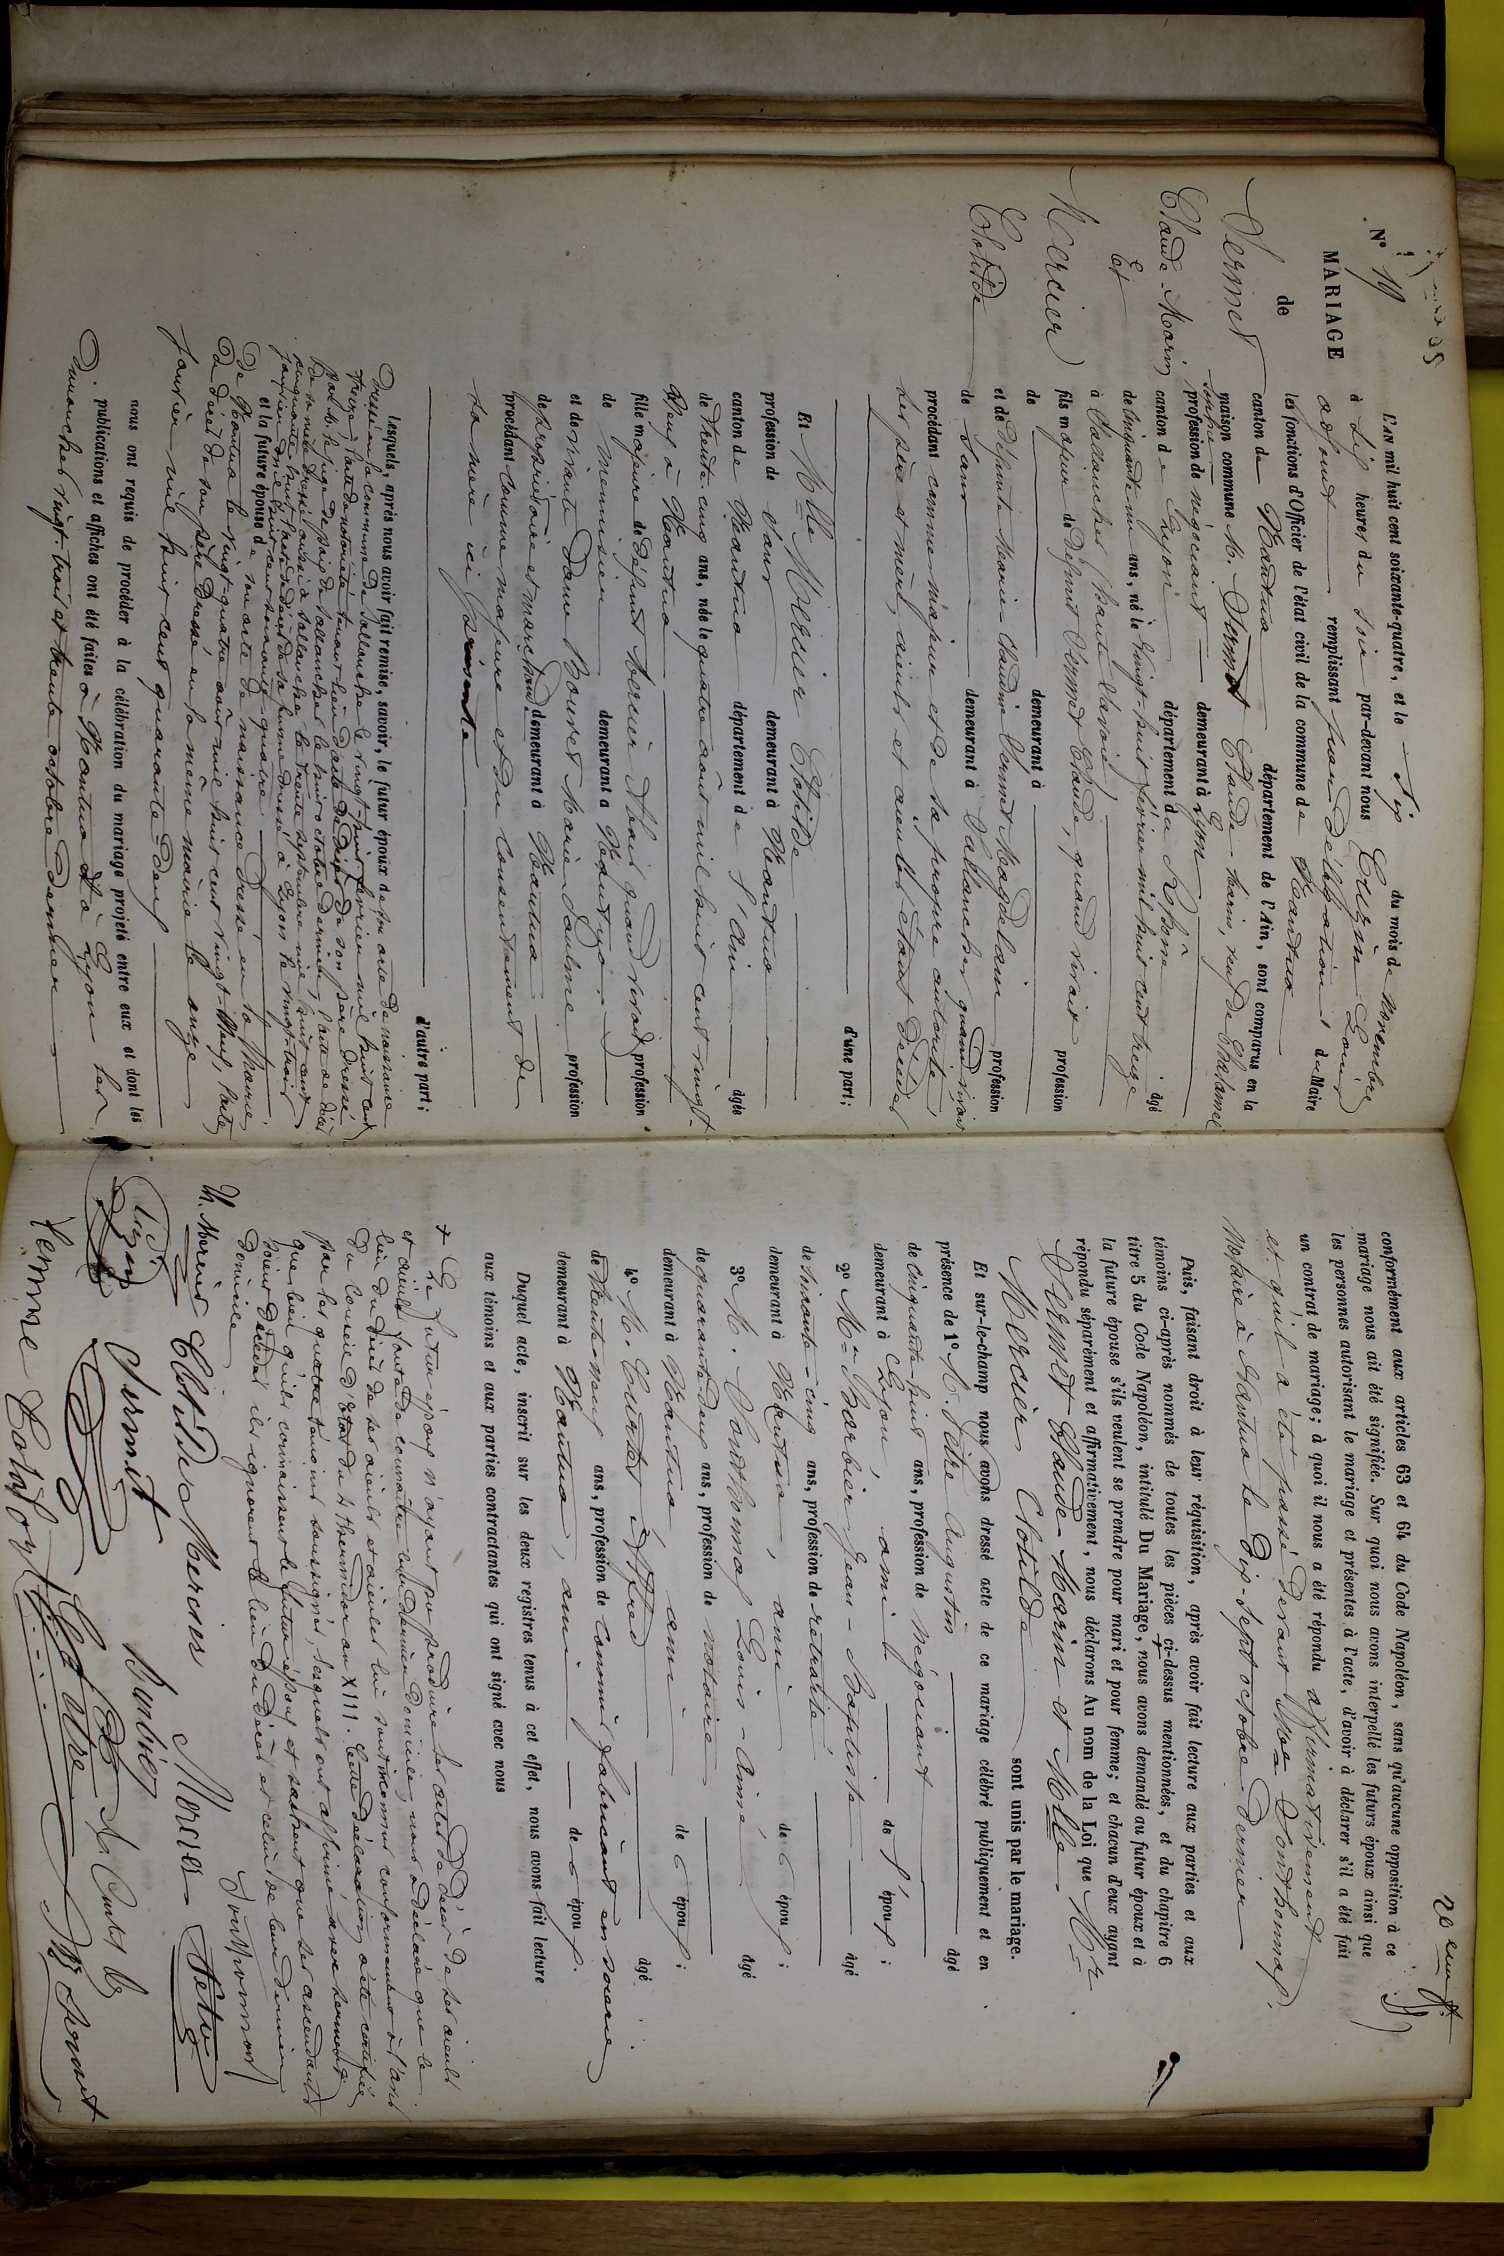 N° 19
MARIAGE
de
Vermet
Claude-Marin
Et
Mercier
Clotilde
L'AN mil huit cent soixante-quatre, et le six du mois de novembre
à dix heures du soir par-devant nous Louis
adjoint remplissant par délégation du Maire
les fonctions d'Officier de l'état civil de la commune de Nantua
canton de Nantua département de l'Ain, sont comparus en la
maison commune M. Vermet Claude-Marin, veuf de
profession de négociant demeurant à Lyon
canton de Lyon département du Rhône âgé
de cinquante-un ans, né le vingt-huit février mil huit cent treize
à Sallanches (haute Savoie)
fils majeur de défunt Vermet Claude, quand vivait profession
de demeurant à
et de défunte Marie-Claudine Vermet Magdelain profession
de sans demeurant à Sallanches, quand vivait
procédant comme majeur et de sa propre autorité,
ses père et mère, aïeuls et aïeules étant décédés
d'une part;
Et Mlle Mercier Clotilde
profession de sans demeurant à Nantua
canton de Nantua département de l'Ain âgée
de trente cinq ans, née le quatre août mil huit cent vingt-
neuf à Nantua
fille majeure de défunt Mercier quand vivait profession
de menuisier demeurant à Nantua
et de vivante Dame Bouvet Marie profession
de propriétaire et marchande demeurant à Nantua
procédant comme majeure et du consentement de
sa mère ici présente
d'autre part;
Lesquels, après nous avoir fait remise, savoir, le futur époux de son acte de naissance
dressé en la commune de Sallanche le vingt-huit février mil huit cent
treize, l'acte de notoriété tenant lieu d'acte de décès de son père dressé
par le juge de paix de Sallanches le huit octobre dernier, l'acte de décès
de sa mère dressé aussi à Sallanche le trente septembre mil huit cent
cinquante huit, l'acte de décès de sa femme dressé à Lyon le vingt-trois
janvier mil huit cent soixante-quatre
et la future épouse de son acte de naissance dressé en la Mairie
de Nantua le vingt-quatre août mil huit cent vingt-neuf, l'acte
de décès de son père dressé en la même mairie le onze
janvier mil huit cent quarante-deux
nous ont requis de procéder à la célébration du mariage projeté entre eux et dont les
publications et affiches ont été faites à Nantua et à Lyon les
dimanches vingt-trois et trente octobre dernier
conformément aux articles 63 et 64 du Code Napoléon, sans qu'aucune opposition à ce
mariage nous ait été signifiée. Sur quoi nous avons interpellé les futurs époux ainsi que
les personnes autorisant le mariage et présentes à l'acte, d'avoir à déclarer s'il a été fait
un contrat de mariage; à quoi il nous a été répondu affirmativement
et qu'il a été passé devant Me Vouthonnax,
Notaire à Nantua le dix-sept octobre dernier
Puis, faisant droit à leur réquisition, après avoir fait lecture aux parties et aux
témoins ci-après nommés de toutes les pièces ci-dessus mentionnées, et du chapitre 6
titre 5 du Code Napoléon, intitulé Du Mariage, nous avons demandé au futur époux et à
la future épouse s'ils veulent se prendre pour mari et pour femme; et chacun d'eux ayant
répondu séparément et affirmativement, nous déclarons Au nom de la Loi que Mr
Vermet Claude-Marin et Mlle
Mercier Clotilde sont unis par le mariage.
Et sur-le-champ nous avons dressé acte de ce mariage célébré publiquement et en
présence de 1° M. Augustin âgé
de cinquante-huit ans, profession de négociant
demeurant à Lyon, ami de l'époux;
2° Mr Barbier Jean-Batiste âgé
de soixante-cinq ans, profession de retraité
demeurant à Nantua, ami de l'époux;
3° M. Vouthonnax Louis-Aimé âgé
de quarante-deux ans, profession de notaire
demeurant à Nantua, ami de l'époux;
4° M. Curtet Alfred âgé
de trente-neuf ans, profession de commis fabricant en soierie
demeurant à Nantua, ami de l'époux.
Duquel acte, inscrit sur les deux registres tenus à cet effet, nous avons fait lecture
aux témoins et aux parties contractantes qui ont signé avec nous
+ Le futur époux n'ayant pu produire les actes de décès de ses aïeuls
et aïeules faute de connaître leur dernier domicile, nous a déclaré que le
lieu du décès de ses aïeuls et aïeules lui sont inconnus conformément à l'avis
du Conseil d'État du 4 thermidor an XIII. Cette déclaration a été certifiée
par les quatre témoins soussignés, lesquels ont affirmé avec serment
que bien qu'ils connaissent le futur époux et sachent que ses ascendants
soient décédés ils ignorent le lieu du décès et celui de leur dernier
domicile
Clotilde Mercier
Mercier
Vermet
Barbier
Vouthonnax